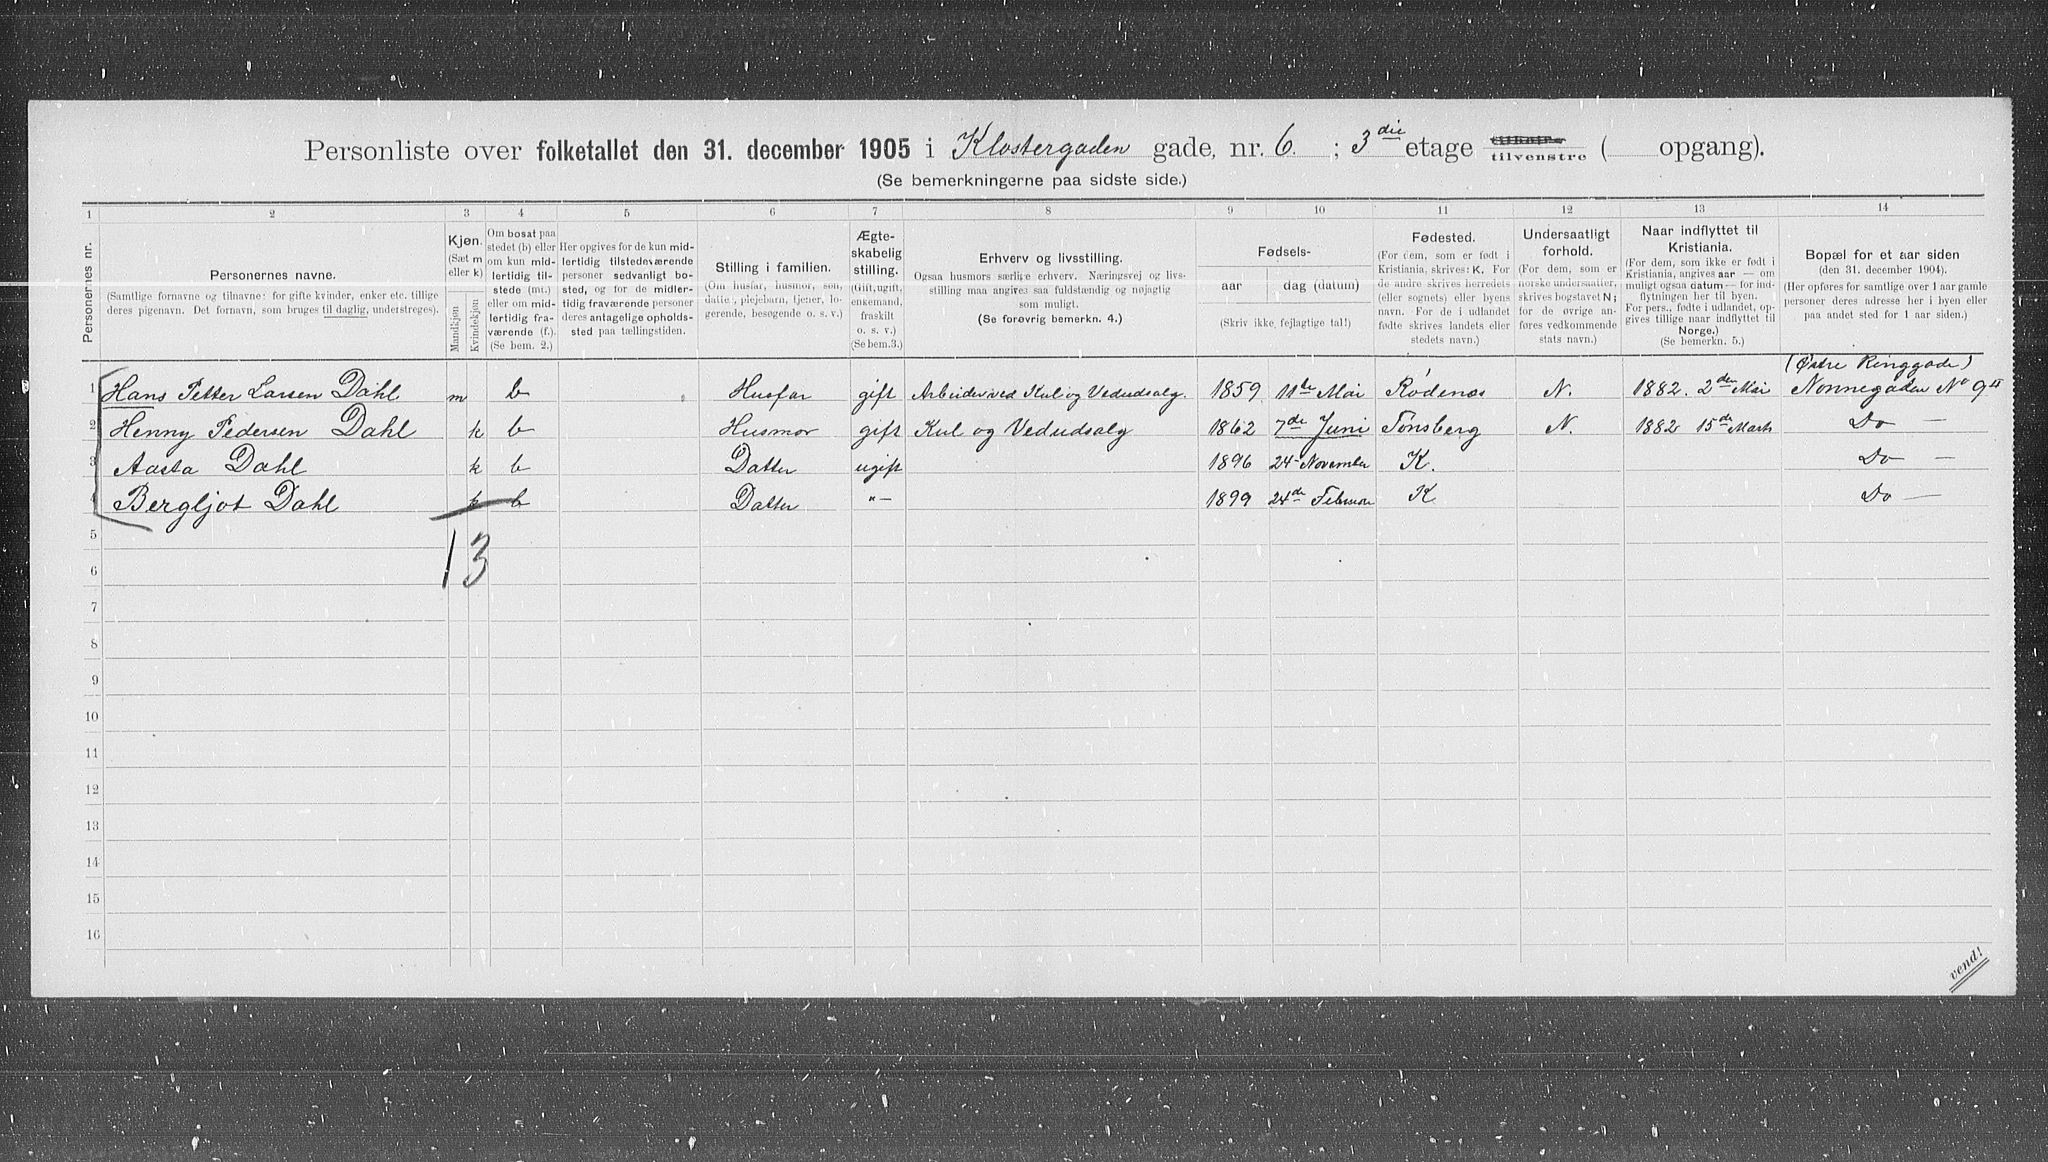 Personliste over folketallet den 31. december 1905 i Klostergaden gade, nr. 6. ; 3die etage tilvenstre ( opgang).
(Se bemerkningerne paa sidste side.)
1 2 3 4 5 6 7 8 9 10 11 12 13 14
Personernes nr.
Personernes navne.
(Samtlige fornavne og tilnavne: for gifte kvinder, enker etc. tillige
deres pigenavn. Det fornavn, som bruges til daglig, understreges).
Kjøn.
(Sæt m
eller k)
Mandkjøn
Kvindekjøn
Om bosat paa
stedet (b) eller
om kun mid-
lertidig til-
stede (mt.)
eller om mid-
lertidig fra-
værende (f.).
(Se bem. 2.)
Her opgives for de kun mid-
lertidig tilstedeværende
personer sedvanligt bo-
sted, og for de midler-
tidig fraværende personer
deres antagelige opholds-
sted paa tællingstiden.
Stilling i familien.
(Om husfar, husmor, søn,
datter, plejebarn, tjener, lo-
gerende, besøgende o. s. v.)
Ægte-
skabelig
stilling.
(Gift, ugift,
enkemand,
fraskilt
o. s. v.)
(Se bem.3.)
Erhverv og livsstilling.
Ogsaa husmors særlige erhverv. Næringsvej og livs-
stilling maa angives saa fuldstændig og nøjagtig
som muligt.
(Se forøvrig bemerkn. 4.)
Fødsels-
aar
dag (datum)
(Skriv ikke fejlagtige tal!)
Fødested.
(For dem, som er født i
Kristiania, skrives: K. For
de andre skrives herredets
(eller sognets) eller byens
navn. For de i udlandet
fødte skrives landets eller
stedets navn.)
Undersaatligt
forhold.
(For dem, som er
norske undersaatter,
skrives bogstavet N;
for de øvrige an-
føres vedkommende
stats navn.)
Naar indflyttet til
Kristiania.
(For dem, som ikke er født i
Kristiania, angives aar — om
muligt ogsaa datum — for ind-
flytningen her til byen.
For pers., fødte i udlandet, op-
gives tillige naar indflyttet til
Norge.)
(Se bemerkn. 5.)
Bopæl for et aar siden
(den 31. december 1904).
(Her opføres for samtlige over 1 aar gamle
personer deres adresse her i byen eller
paa andet sted for 1 aar siden.)
(Østre Ringgade)
1 Hans Petter Larsen Dahl m b Husfar gift Arbeider ved Kul og Vedudsalg. 1859 11te Mai Rødenæs N. 1882. 2den Mai Nonnegaden No 9 II
2 Henny Pedersen Dahl k b Husmor gift Kul og Vedudsalg 1862 7de Juni Tønsberg N. 1882 15de Marts Do —
3 Aasta Dahl k b Datter ugift 1896 24 November K. Do —
4 Bergljot Dahl k b Datter "— 1899 24de Februar K Do —
5
1 3
6
7
8
9
10
11
12
13
14
15
16
vend!